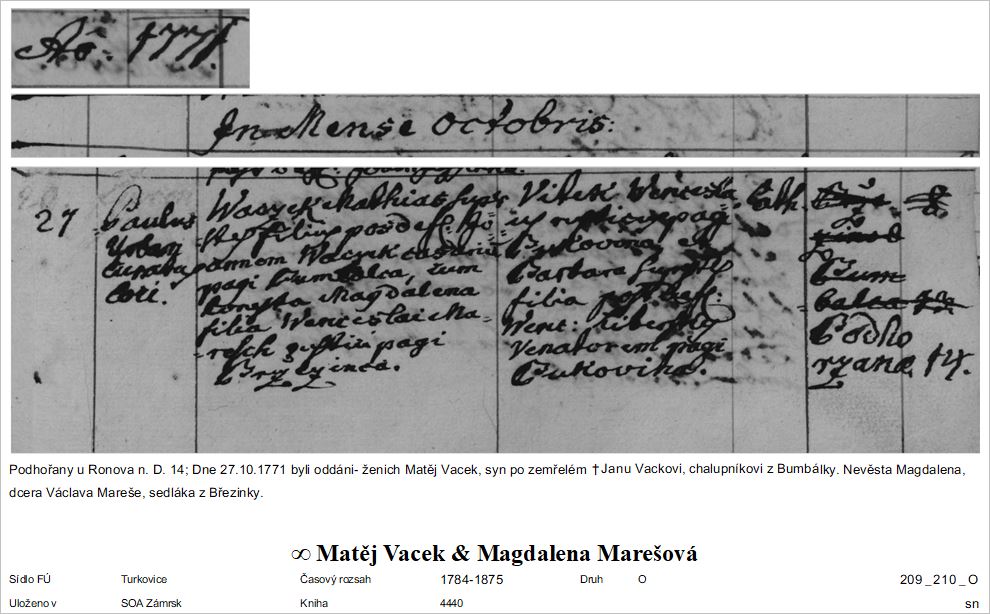 Aõ: 1771
In Mense Octobris:
27
Paulus
Urban
Curatus
loci.
Waczek Mathias
filius post def: Jo-
annem Waczek casarium
pagi Bumbalca, cum
honesta Magdalena
filia Wenceslai Ma-
resch rustici pagi
Brzezinca.
Vitek Wencesla
rustici pagi
Bukovina, et
Barbara
filia post def:
Wenc:
Venatorem pagi
Bukovina.
Cath.
Bum
balca
Podho
rzana 14.
Podhořany u Ronova n. D. 14; Dne 27.10.1771 byli oddáni- ženich Matěj Vacek, syn po zemřelém †Janu Vackovi, chalupníkovi z Bumbálky. Nevěsta Magdalena,
dcera Václava Mareše, sedláka z Březinky.
∞ Matěj Vacek & Magdalena Marešová
Sídlo FÚ Turkovice Časový rozsah 1784-1875 Druh O 209_210_O
Uloženo v SOA Zámrsk Kniha 4440 sn